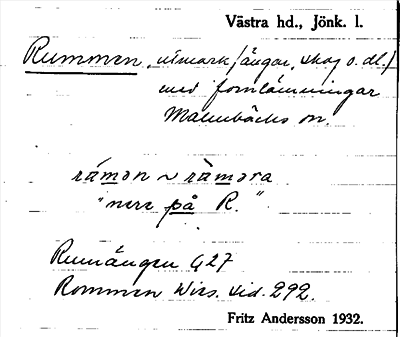 Västra hd., Jönk. l.
Rummen, utmark/ängar, skog o. dl./
med fornlämningar
Malmbäcks sn.
råmon ~ råmora
"nere på R."
Rumängen G 27
Rommen Wies. sid. 292.
Fritz Andersson 1932.